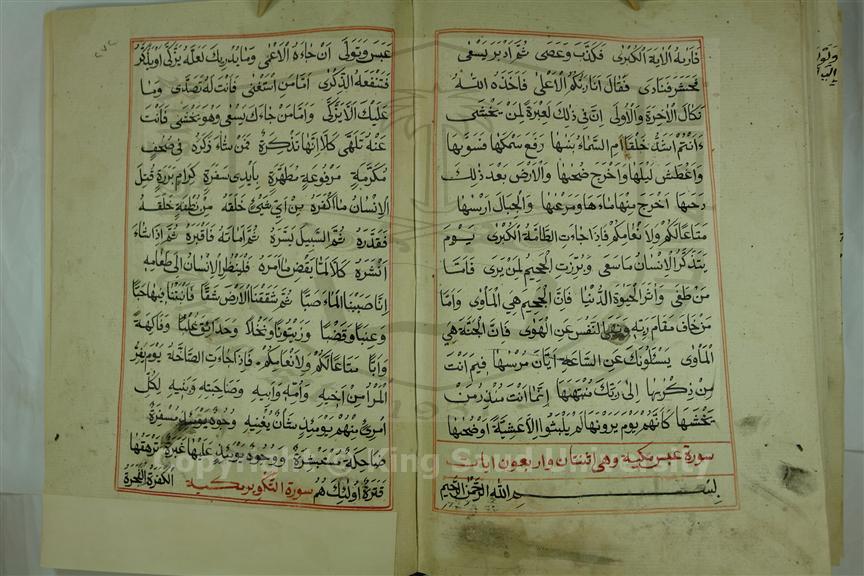 فاريه الاية الكبرى فكذب وعصى ثم ادبر يسعى
فحشر فنادى فقال انا ربكم الاعلى فاخذه الله
نكال الاخرة والاولى ان في ذلك لعبرة لمن يخشى
ءانتم اشد خلقا ام السماء بنيها رفع سمكها فسويها
واغطش ليلها واخرج ضحيها والارض بعد ذلك
دحيها اخرج منها ماءها ومرعيها والجبال ارسيها
متاعا لكم ولانعامكم فاذا جاءت الطامة الكبرى يوم
يتذكر الانسان ما سعى وبرزت الجحيم لمن يرى فاما
من طغى واثر الحيوة الدنيا فان الجحيم هي الماوى واما
من خاف مقام ربه ونهى النفس عن الهوى فان الجنة هي
الماوى يسئلونك عن الساعة ايان مرسيها فيم انت
من ذكريها الى ربك منتهيها انما انت منذر من
يخشيها كانهم يوم يرونها لم يلبثوا الا عشية او ضحيها
سورة عبس مكية وهي اثنتان واربعون ايات
بسم الله الرحمن الرحيم
عبس وتولى ان جاءه الاعمى وما يدريك لعله يزكى او يذكر
فتنفعه الذكرى اما من استغنى فانت له تصدى وما
عليك الا يزكى واما من جاءك يسعى وهو يخشى فانت
عنه تلهى كلا انها تذكرة فمن شاء ذكره في صحف
مكرمة مرفوعة مطهرة بايدى سفرة كرام بررة قتل
الانسان ما اكفره من اي شيء خلقه من نطفة خلقه
فقدره ثم السبيل يسره ثم اماته فاقبره ثم اذا شاء
انشره كلا لما يقض ما امره فلينظر الانسان الى طعامه
انا صببنا الماء صبا ثم شققنا الارض شقا فانبتنا فيها حبا
وعنبا وقضبا وزيتونا ونخلا وحدائق غلبا وفاكهة
وابا متاعا لكم ولانعامكم فاذا جاءت الصاخة يوم يفر
المرء من اخيه وامه وابيه وصاحبته وبنيه لكل
امرئ منهم يومئذ شان يغنيه وجوه يومئذ مسفرة
ضاحكة مستبشرة ووجوه يومئذ عليها غبرة ترهقها
قترة اولئك هم الكفرة الفجرة سورة التكوير مكية